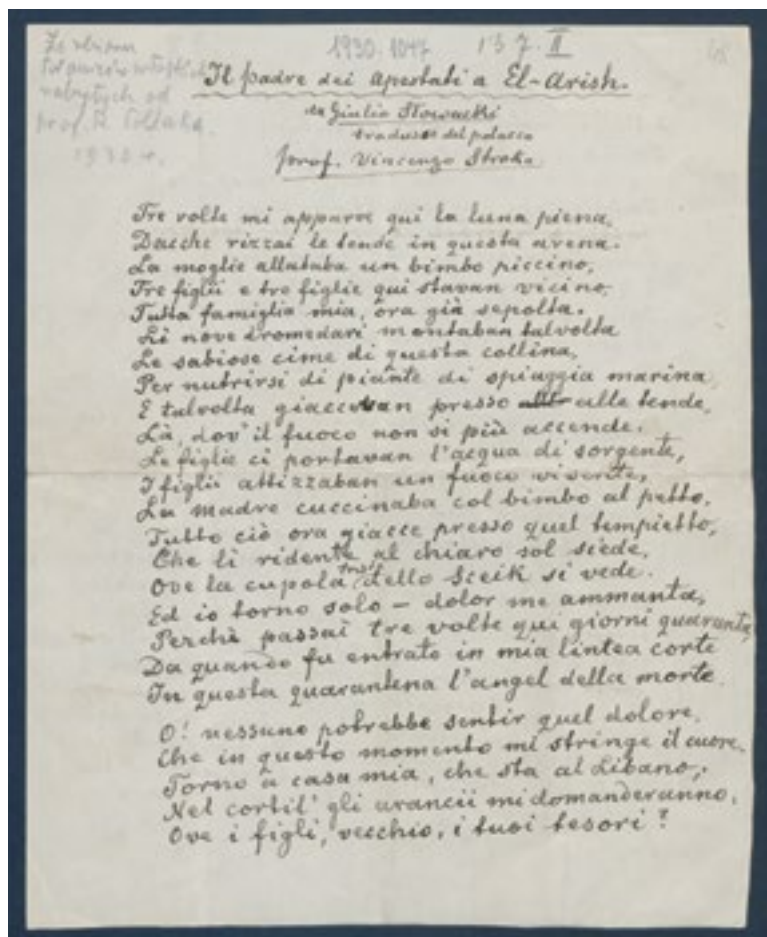 Ze zbioru
nabytych od
prof. R. Pollaka
1930 r.
1930.1047
137. II
48
Il padre dei apestati a El-Arish.
da Giulio Słowacki
traduse del polacco
prof. Vincenzo Straka
Tre volte mi apparve qui la luna piena,
Dacche rizzai le tende in questa arena.
La moglie allataba un bimbo piccino,
Tre figlii e tre figlie qui stavan vicino,
Tutta famiglia mia, ora già sepolta.
Li nove dromedari montaban talvolta
Le sabiose cime di questa collina,
Per nutrirsi di piante di spiaggia marina,
E talvolta giaccevan presso alle tende,
Là, dov' il fuoco non si più accende.
Le figlie ci portavan l'acqua di sorgente,
I figlii attizzaban un fuoco
La madre cuccinaba col bimbo al petto,
Tutto ciò ora giacce presso quel tempietto,
Che li ridente al chiaro sol siede,
Ove la cupola dello Sceik si vede.
Ed io torno solo – dolor me ammanta,
Perchè passai tre volte qui giorni quaranta,
Da quando fu entrato in mia lintea corte
In questa quarantena l'angel della morte.
O! nessuno potrebbe sentir quel dolore,
Che in questo momento mi stringe il cuore.
Torno a casa mia, che sta al Libano,
Nel cortil' gli arancii mi domanderanno,
Ove i figli, vecchio, i tuoi tesori?